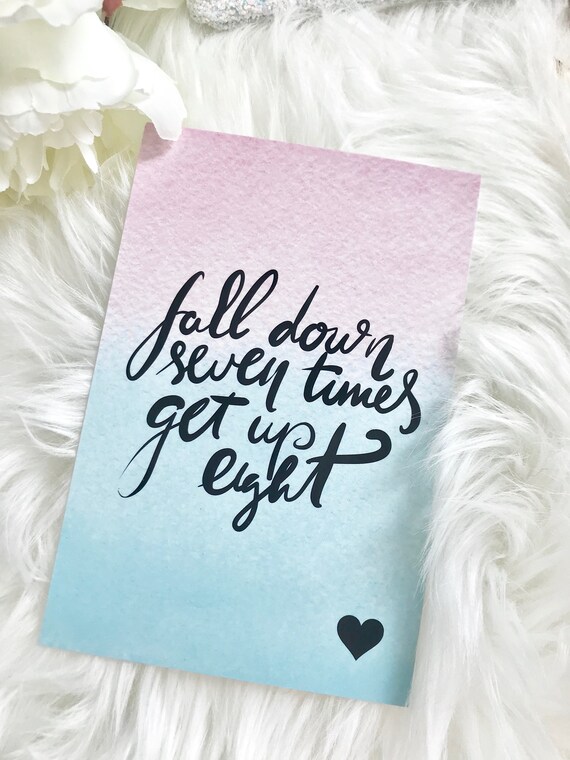 fall down
seven times
get up
eight